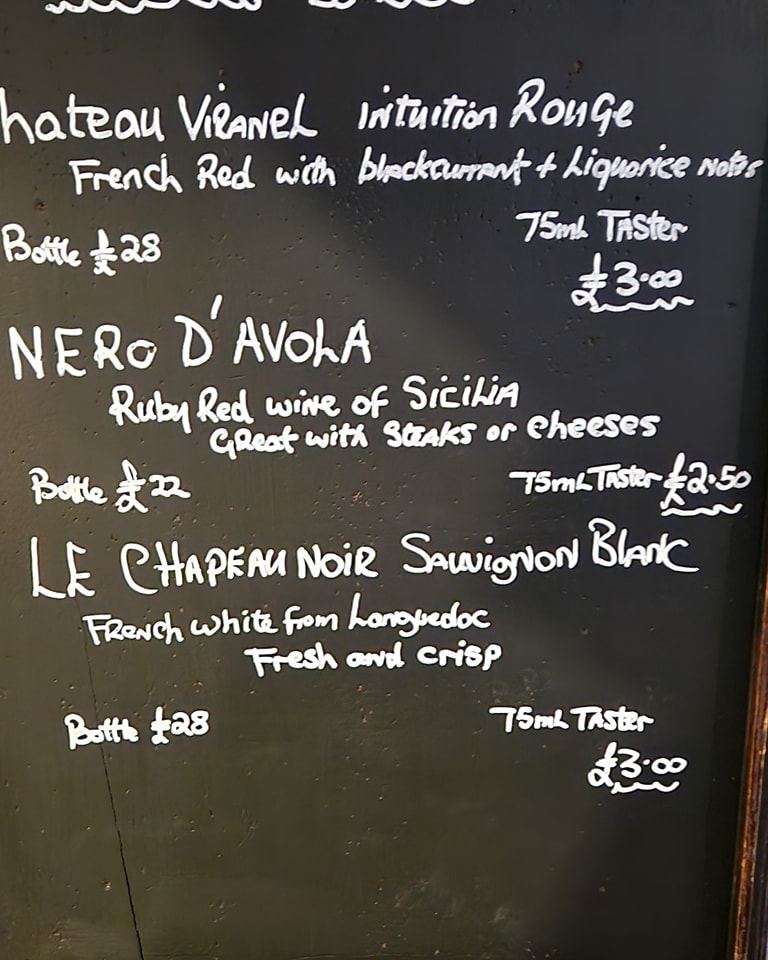 hateau Viranel Intuition Rouge
French Red with blackcurrant + Liquorice notes
Bottle £28
75ml Taster
£3.00
NERO D'AVOLA
Ruby Red wine of Sicilia
Great with Steaks or cheeses
Bottle £22
75ml Taster £2.50
LE CHAPEAU NOIR Sauvignon Blanc
French white from Languedoc
Fresh and crisp
Bottle £28
75ml Taster
£3.00